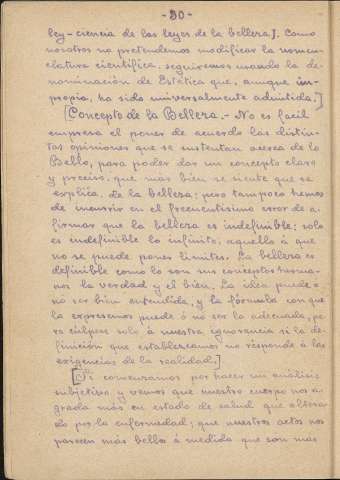 - 30 -
ley-ciencia de las leyes de la belleza]. Como
nosotros no pretendemos modificar la nomen-
clatura científica, seguiremos usando la de-
nominación de Estética que, aunque im-
propia, ha sido universalmente admitida.]
[Concepto de la Belleza. - No es facil
empresa el poner de acuerdo las distin-
tas opiniones que se sustentan acerca de lo
Bello, para poder dar un concepto claro
y preciso, que más bien se siente que se
explica, de la belleza; pero tampoco hemos
de incurrir en el frecuentísimo error de a-
firmar que la belleza es indefinible; solo
es indefinible lo infinito; aquello á que
no se puede poner límites. La belleza es
definible como lo son sus conceptos herma-
nos la verdad y el bien. La idea puede ó
nó ser bien entendida, y la fórmula con que
la expresemos puede ó nó ser la adecuada, pe-
ro cúlpese solo á nuestra ignorancia si la de-
finición que establezcamos no responde á las
exigencias de la realidad.]
[Si comenzamos por hacer un análisis
subjetivo y vemos que nuestro cuerpo nos a-
grada más en estado de salud que altera-
do por la enfermedad; que nuestros actos nos
parecen más bellos á medida que son más